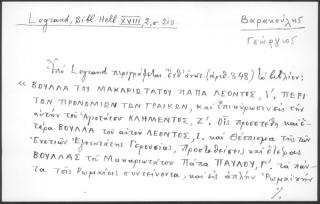 Legrand, Bibl. Hell XVIII, 2, σ. 210.
Βαρακούλης
Γεώργιος
Ὑπό Legrand περιγράφεται ἐνθ' ἀνωτ. (ἀριθ. 848) τό βιβλίον:
« ΒΟΥΛΛΑ ΤΟΥ ΜΑΚΑΡΙΩΤΑΤΟΥ ΠΑΠΑ ΛΕΟΝΤΟΣ, Ι΄. ΠΕΡΙ
ΤΩΝ ΠΡΟΝΟΜΙΩΝ ΤΩΝ ΓΡΑΙΚΩΝ, καὶ ἐπικύρωσις εἰς τὴν
αὐτὴν τοῦ Ἁγιοτάτου ΚΛΗΜΕΝΤΟΣ, Ζ΄. Οἷς προσετέθη καὶ ἑ-
τέρα ΒΟΥΛΛΑ τοῦ αὐτοῦ ΛΕΟΝΤΟΣ, Ι. καὶ Θέσπισμα τῆς τῶν
Ἑνετιῶν Ἐκλαμπροτάτης Γερουσίας, Προστεθείσης καὶ ἑτέρας
ΒΟΥΛΛΑΣ τοῦ Μακαριωτάτου Πάπα ΠΑΥΛΟΥ, Γ΄. τὰ πάν-
τα τοῖς Ῥωμαίοις συντείνοντα, καὶ εἰς ἁπλῆν Ῥωμαϊκὴν
%.